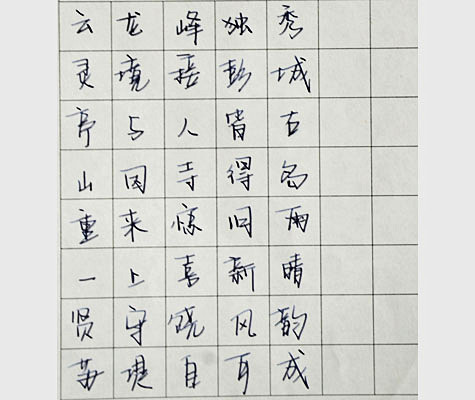 云龙峰独秀
灵境接彭城
亭与人皆古
山因寺得名
重来惊旧雨
一上喜新晴
贤守饶风韵
苏堤自可成